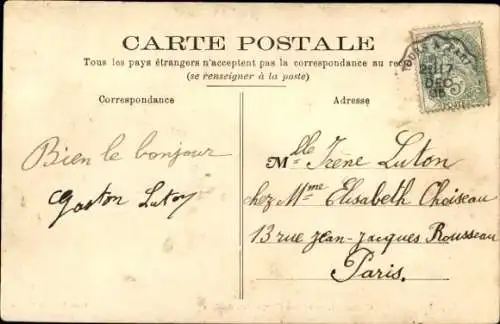 CARTE POSTALE
Tous les pays étrangers n'acceptent pas la correspondance au rec
(se renseigner à la poste)
Correspondance
Adresse
Bien le bonjour
Gaston Luton
Mlle Irène Luton
chez Mme Elisabeth Choiseau
13 rue Jean-Jacques Rousseau
Paris.
17
DEC